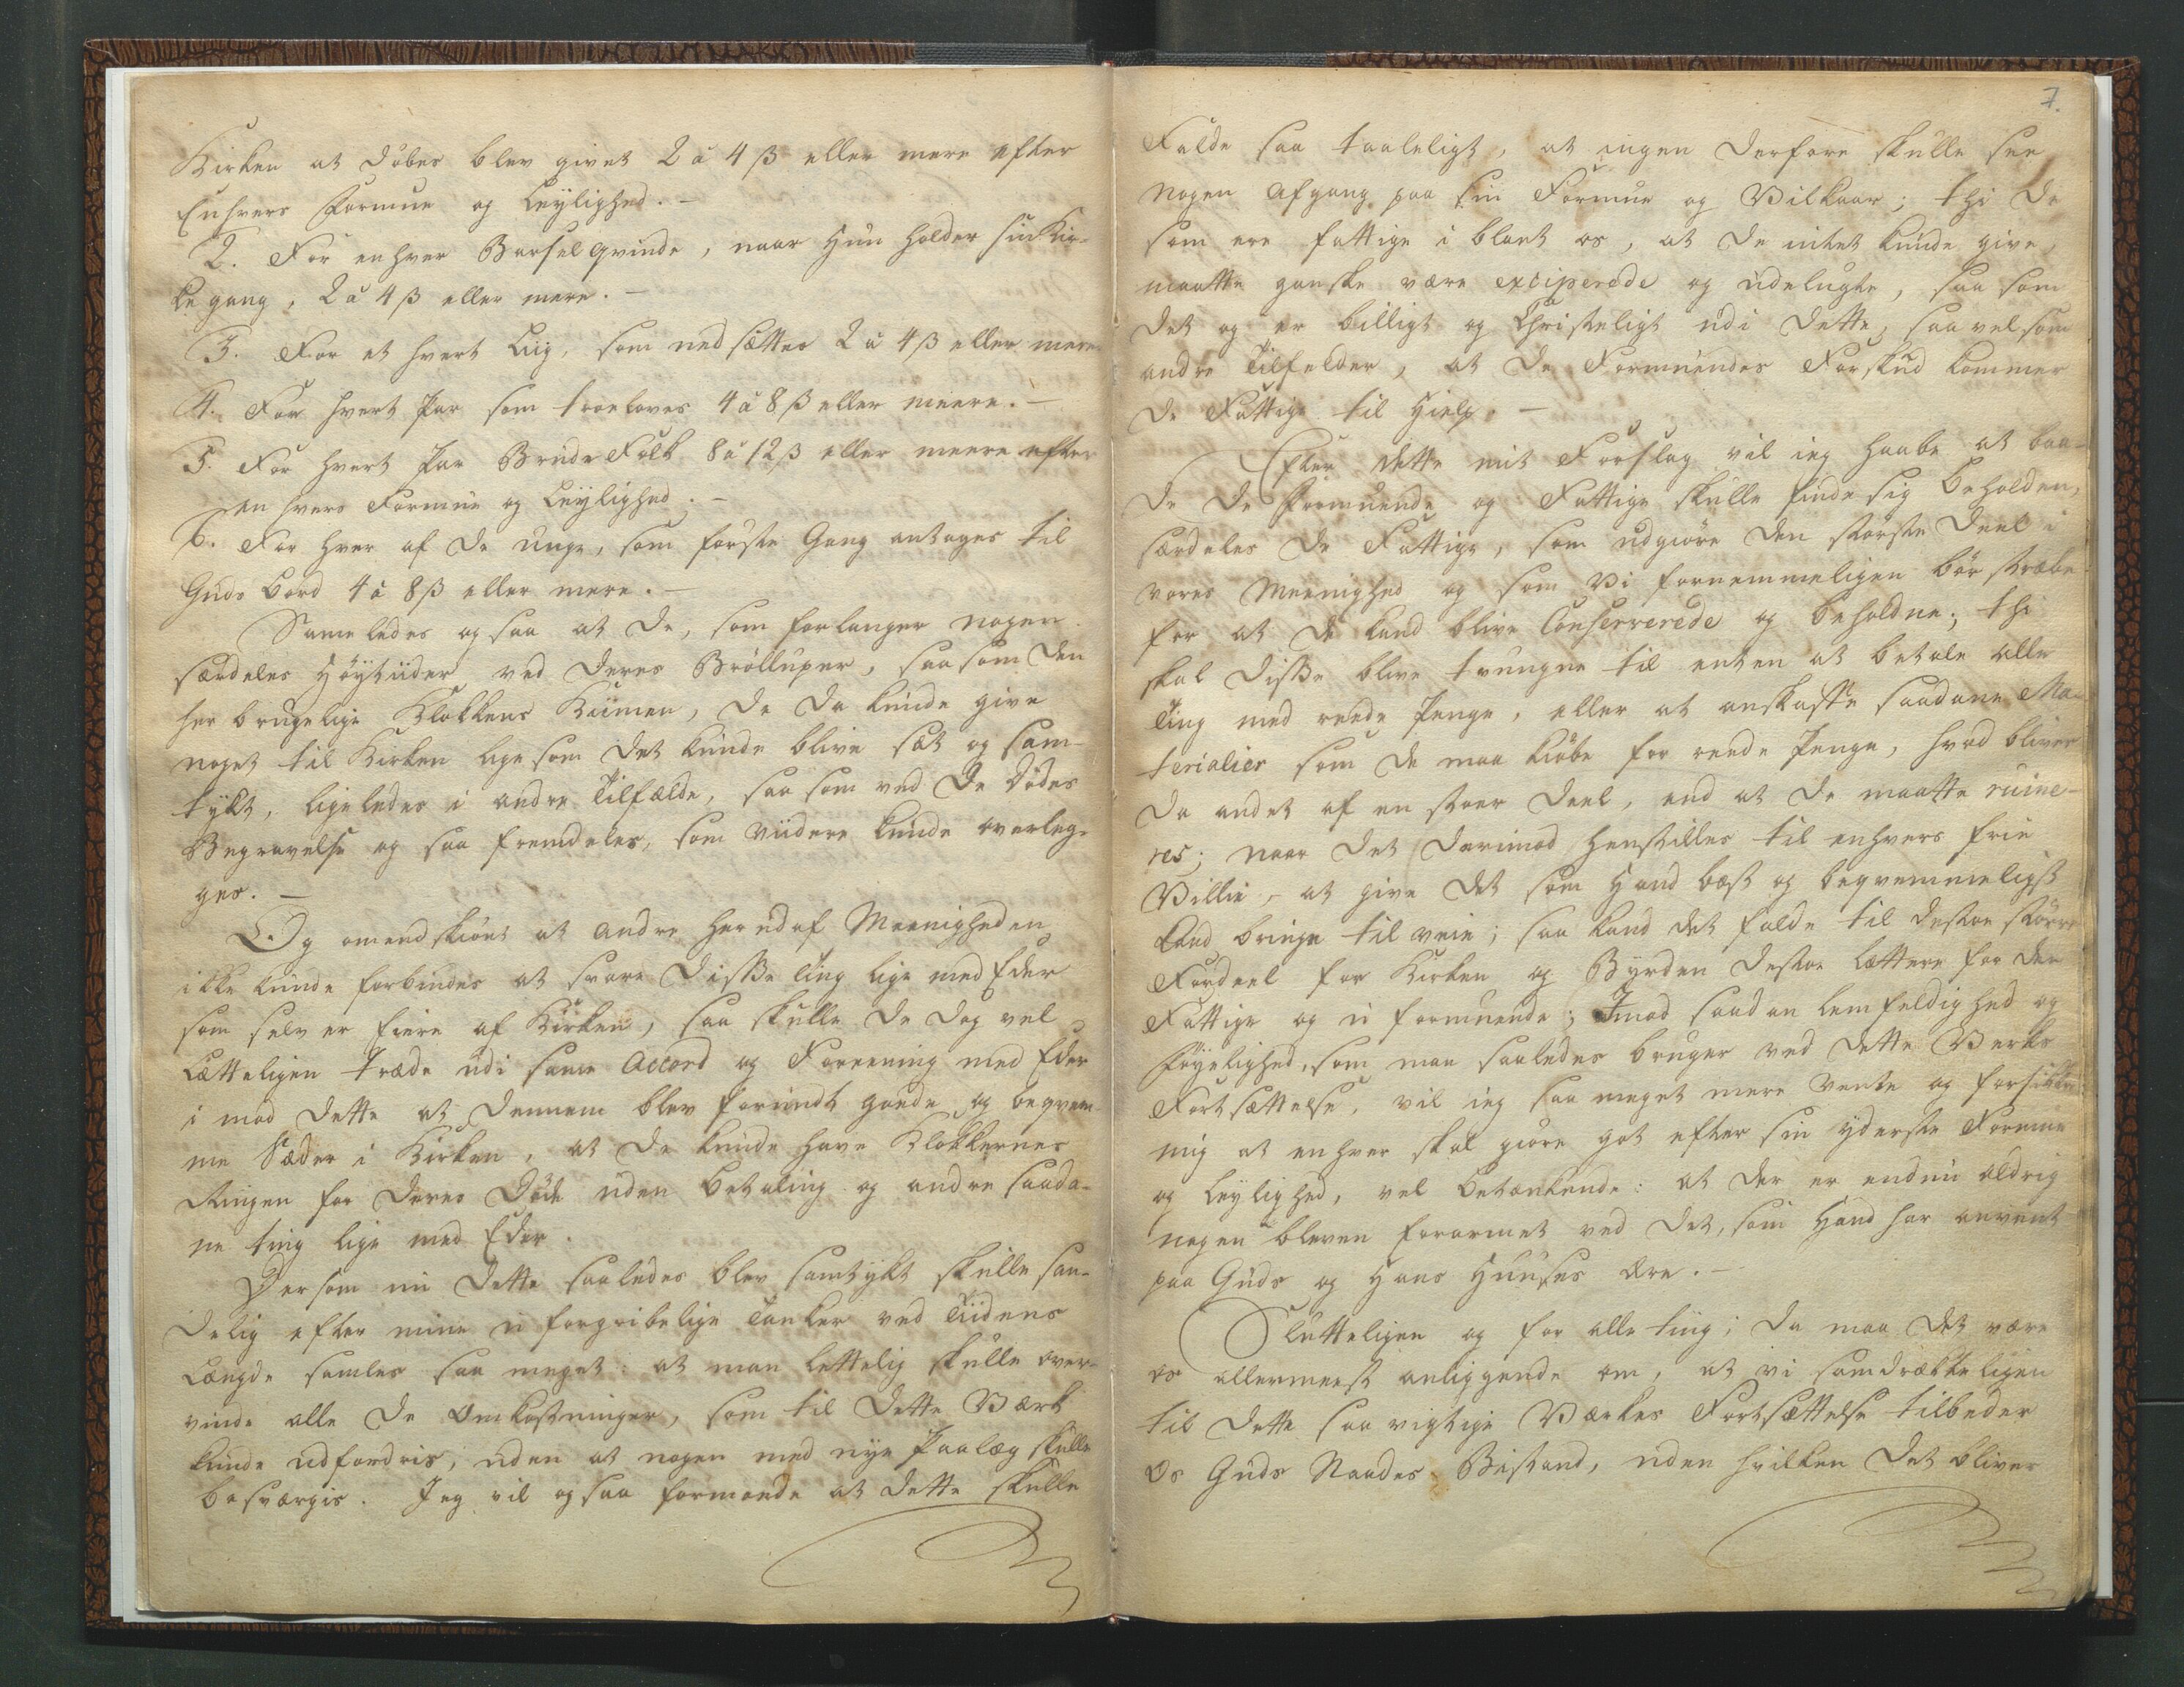 Kirken at døbes blev givet 2 à 4 ß eller mere efter
Enhvers Formue og Leylighed. –
2. For enhver Barselqvinde, naar Hun holder sin Kir-
ke gang, 2 à 4 ß eller mere. –
3. For et hvert Liig, som nedsættes 2 à 4 ß eller mere.
4. For hvert Par som troeloves 4 à 8 ß eller meere. –
5. For hvert Par Brude Folk 8 à 12 ß eller meere efter
en hvers Formue og Leylighed. –
6. For hver af de unge, som første Gang antages til
Guds bord 4 à 8 ß eller mere. –
Sameledes ogsaa at de, som forlanger nogen
særdeles Höytiider ved deres Bröllupper, saasom den
her brugelige Klokkens Kiimen, de da kunde give
noget til Kirken lige som det kunde blive sat og sam-
tykt, ligeledes i andre Tilfælde, saa som ved de dødes
Begravelse og saa fremdeles, som viidere kunde overleg-
ges. –
Og omendskiönt at andre her udaf Meenigheden
ikke kunde forbindes at svare disse ting lige med Eder
som selv er Eiere af Kirken, saa skulle de dog vel
Lætteligen træde udi same Accord og Foreening med Eder
i mod dette at dennem blev forundt goede og beqvem-
me Sæder i Kirken, at de kunde have Klokkernes
Ringen for deres Døde uden betaling og andre saada-
ne ting lige med Eder.
Dersom nu dette saaledes blev samtykt skulle saa-
delig efter mine u forgribelige Tanker ved Tiidens
Længde samles saa meget: at man lettelig skulle over-
vinde alle de Omkostninger, som til dette Værk
kunde udfordris, uden at nogen med nye Paalæg skulle
besværgis. Jeg vil ogsaa formoede at dette skulle
7.
Falde saa taaleligt, at ingen derfore skulle see
nogen Afgang paa sin Formue og Vilkaar; thi de
som ere fattige i blant os, at de intet kunde give,
maatte ganske være exciperede og udelugte, saa som
det og er billigt og Christeligt udi dette, saa vel som
andre Tilfelder, at de Formuendes Forskud kommer
de Fattige til Hielp. –
Efter dette mit Forslag vil ieg haabe at baa-
de de Formuende og Fattige skulle finde sig beholden,
særdeles de Fattige, som udgiøre den største Deel i
vores Meenighed og som Vi fornemmeligen bör stræbe
for at de kand blive Conserverede og beholdne; thi
skal disse blive tvungne til enten at betale alle
ting med reede Penge, eller at anskaffe saadane Ma-
terialier som de maa kiöbe for reede Penge, hvad bliver
da andet af en stoer Deel, end at de maatte ruine-
res; naar det derimod henstilles til enhvers frie
Villie, at give det som Hand bæst og beqvemmeligst
kand bringe til veie; saa kand det falde til desto större
Fordeel for Kirken og Byrden destoe lættere for den
Fattige og u formuende; Imod saadan lemfeldighed og
Föyelighed, som man saaledes bruger ved dette Verks
Fortsættelse, vil ieg saa meget mere vente og forsikkre
mig at enhver skal giøre got efter sin yderste Formue
og Leylighed, vel betænkende: at der er endnu aldrig
nogen bleven forarmet ved det, som Hand har anvent
paa Guds og Hans Huuses Ære. –
Slutteligen og for alle ting; da maa det være
os allermeest anliggende om, at vi samdrækteligen
til dette saa vigtige Værkes Fortsættelse tilbeder
Os Guds Naades Bistand, uden hvilken det bliver